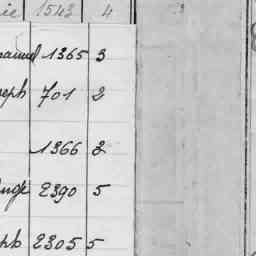 ie 1543 4
1365 3
eph 701 2
1366 2
2390 5
ph 2305 5